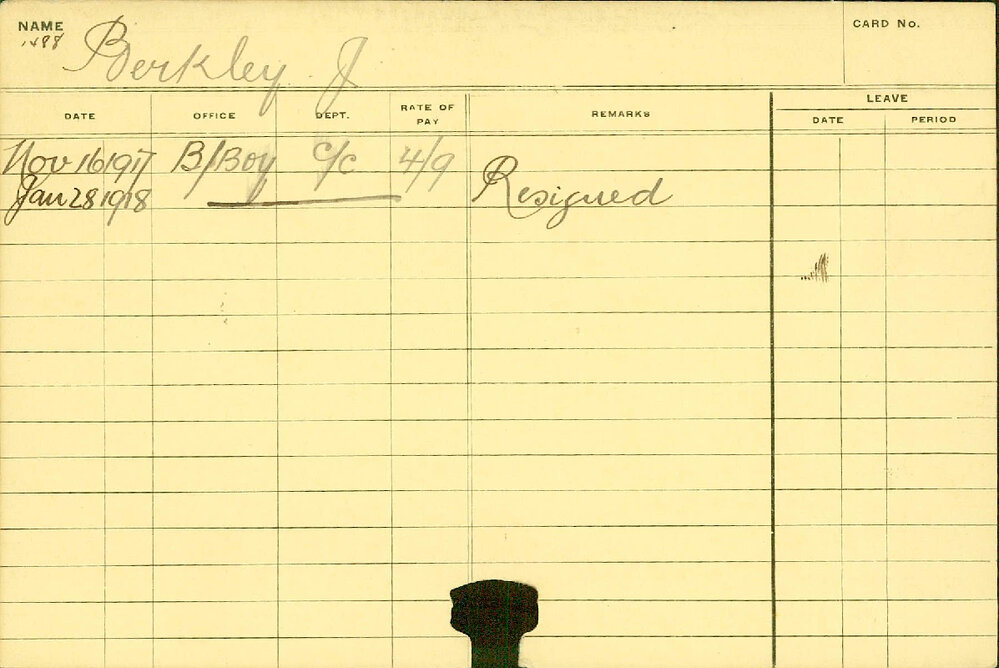 NAME CARD No.
1488 Berkley J
LEAVE
DATE OFFICE DEPT. RATE OF PAY REMARKS DATE PERIOD
Nov 16 1917 B/Boy C/C 4/9
Jan 28 1918 Resigned